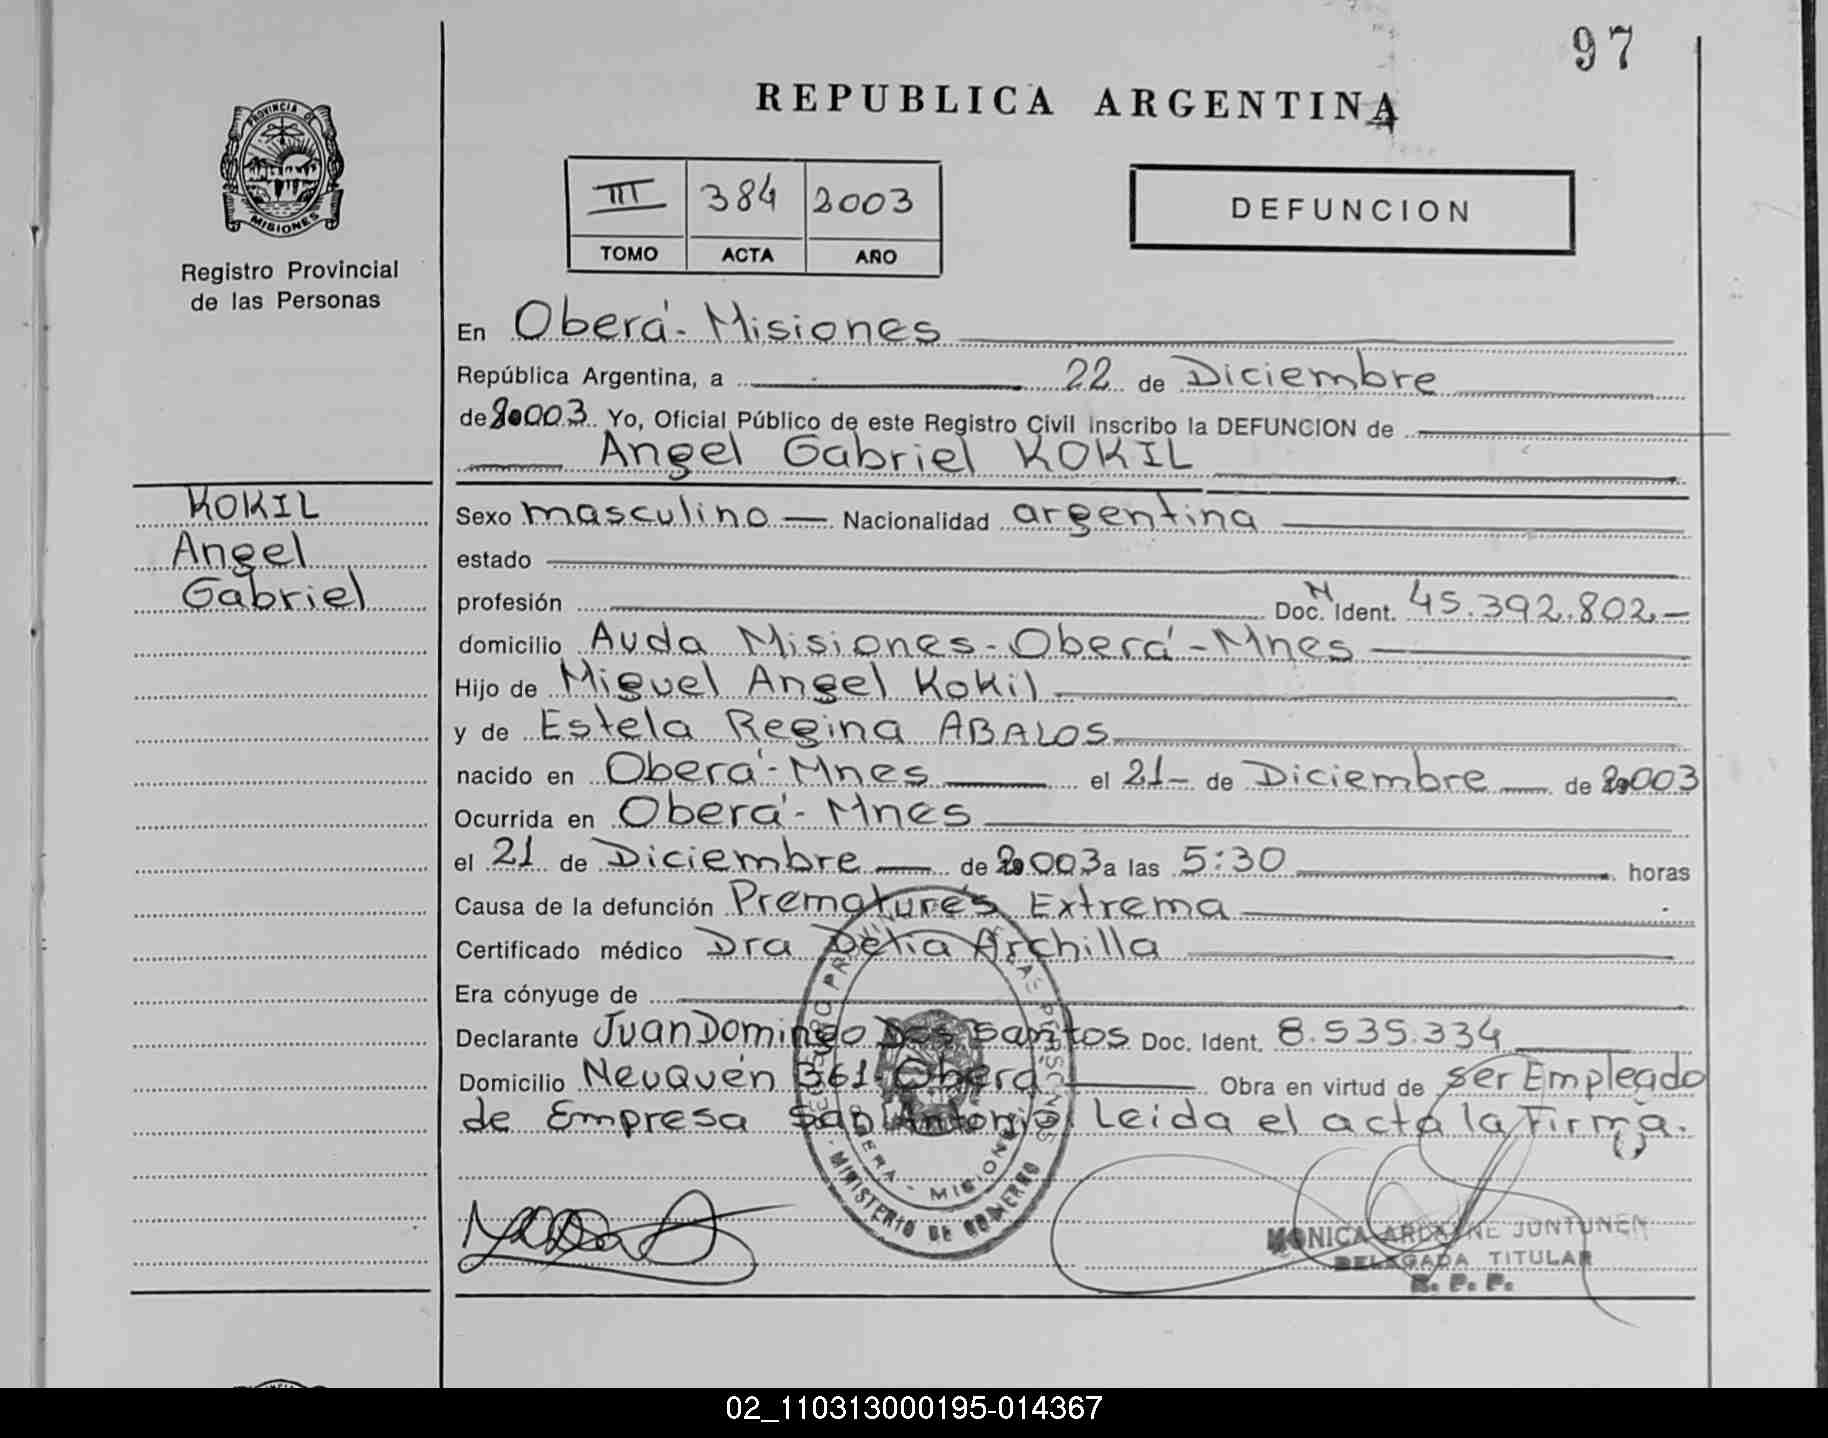 97
REPUBLICA ARGENTINA
PROVINCIA DE MISIONES
Registro Provincial
de las Personas
III 384 2003
TOMO ACTA AÑO
DEFUNCION
En Oberá - Misiones
República Argentina, a 22 de Diciembre
de 2003 Yo, Oficial Público de este Registro Civil inscribo la DEFUNCION de
Angel Gabriel KOKIL
KOKIL
Angel
Gabriel
Sexo masculino — Nacionalidad argentina
estado
profesión Doc. N Ident. 45.392.802.-
domicilio Avda Misiones - Oberá - Mnes
Hijo de Miguel Angel Kokil
y de Estela Regina ABALOS
nacido en Oberá - Mnes el 21 - de Diciembre de 2003
Ocurrida en Oberá - Mnes
el 21 de Diciembre de 2003 a las 5:30 horas
Causa de la defunción Prematurés Extrema
Certificado médico Dra Delia Archilla
Era cónyuge de
Declarante Juan Domingo Dos Santos Doc. Ident. 8.535.334
Domicilio Neuquén 361 - Oberá Obra en virtud de ser Empleado
de Empresa San Antonio Leida el acta la Firma.
MINISTERIO DE GOBIERNO
MONICA JUNTUNEN
DELEGADA TITULAR
R. P. P.
02_110313000195-014367